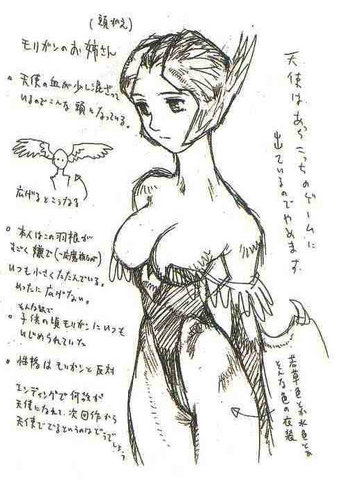 (頭かえ)
モリガンのお姉さん
。天使の血が少し混ざって
いるのでこんな頭になってる。
広げるとこうなる
。本人はこの羽根が
すごく嫌で(一応魔族なので)
いつも小さくたたんでいる。
めったに広げない。
そんな訳で
。子供の頃モリガンにいつも
いじめられていた
。性格はモリガンと反対
エンディングで何故か
天使になれて、次回作から
天使ででるというのはどうでしょう
天使はあっちこっちのゲームに
出ているのでやめます
若草色とか水色とか
そんな色の衣装